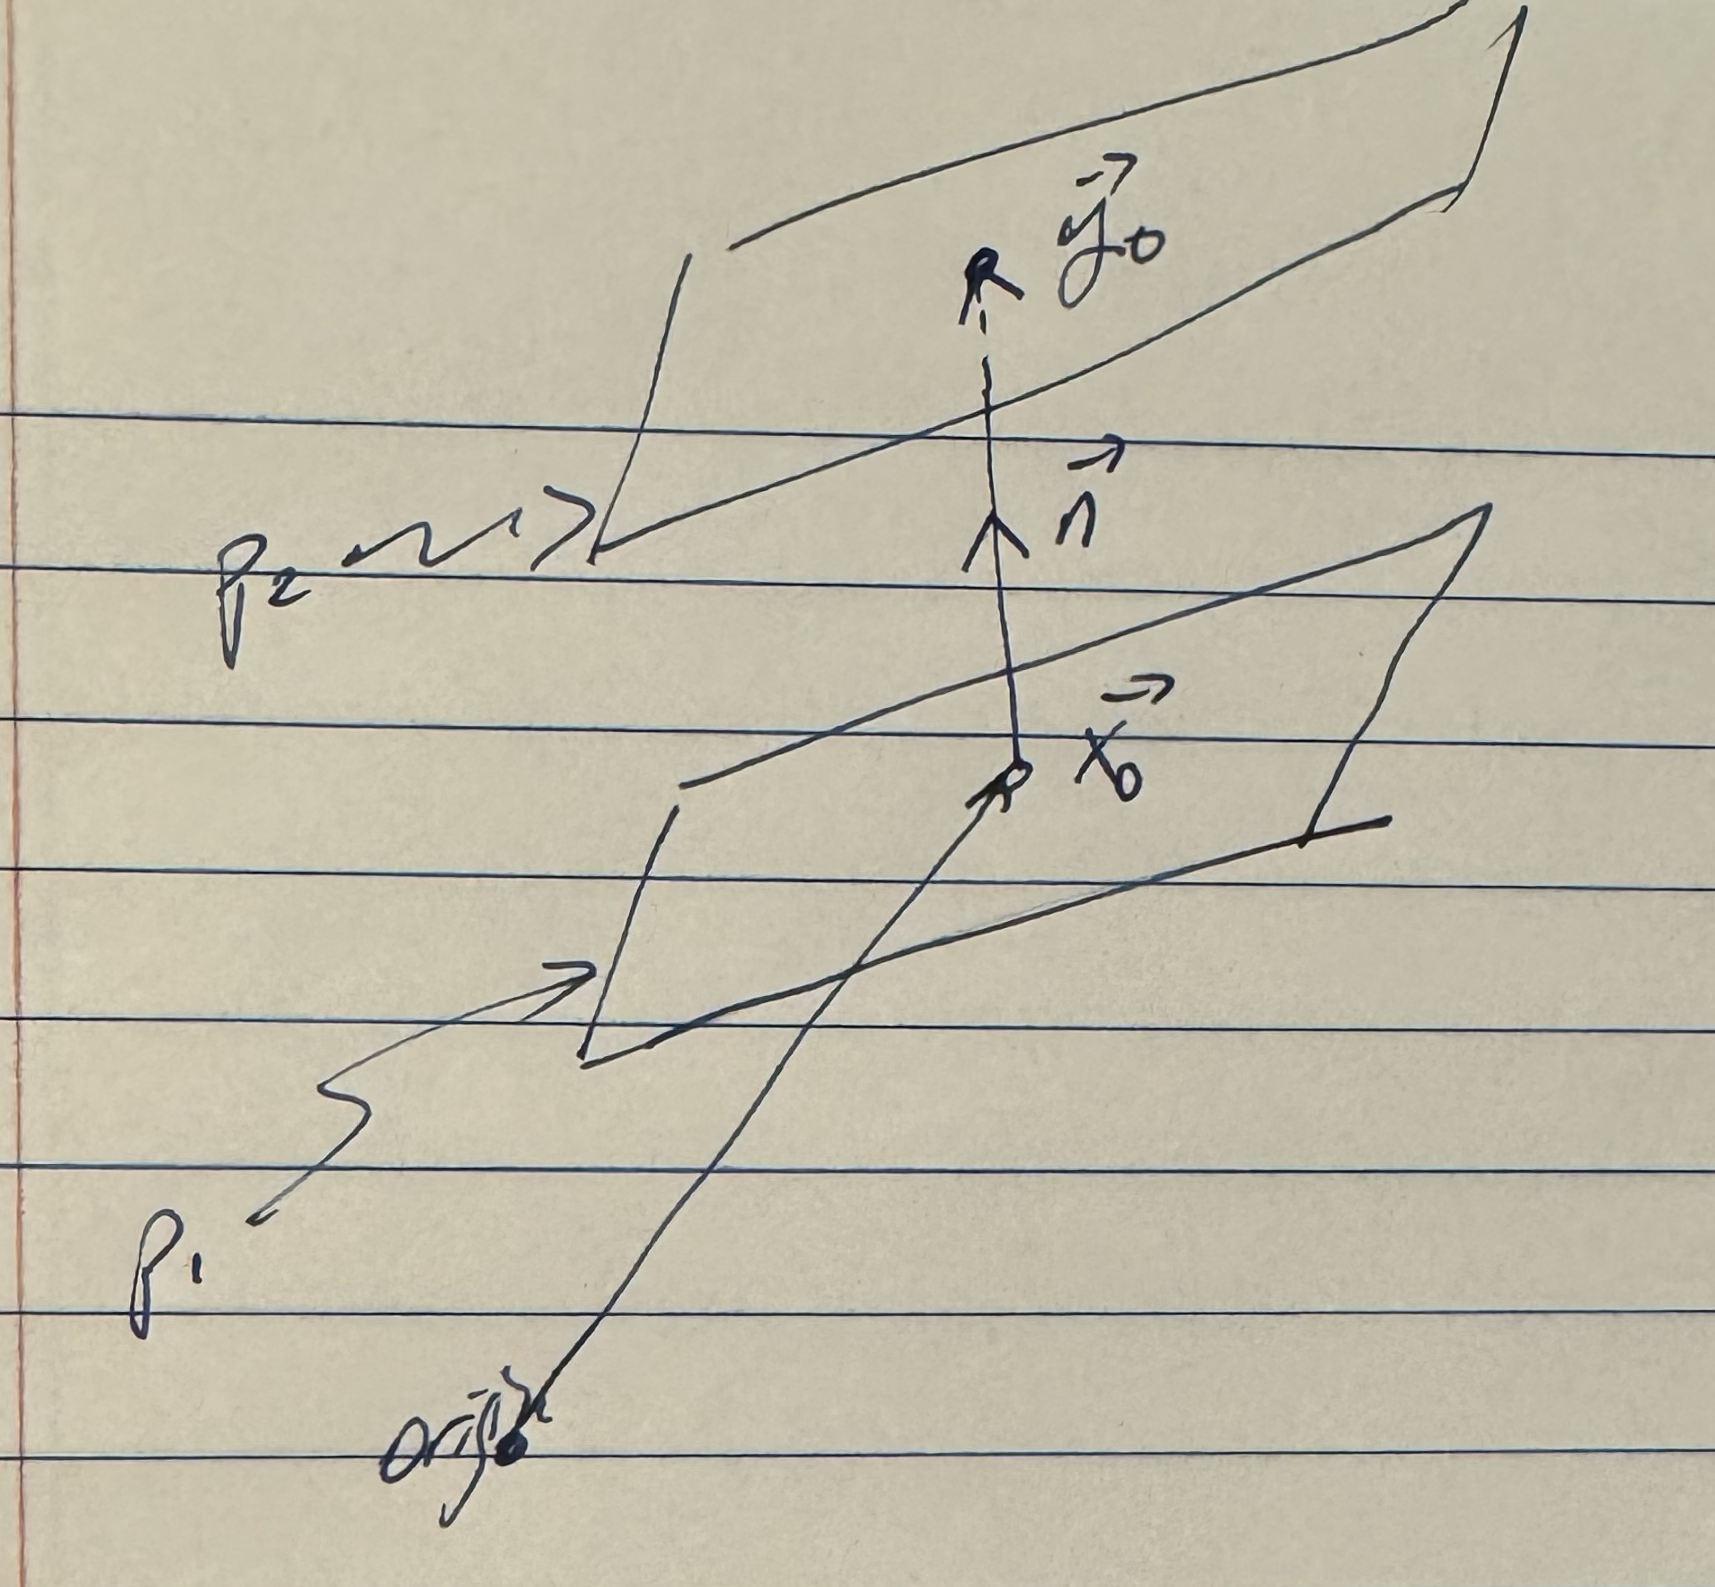 y⃗₀
n⃗
P₂
x⃗₀
P₁
origin